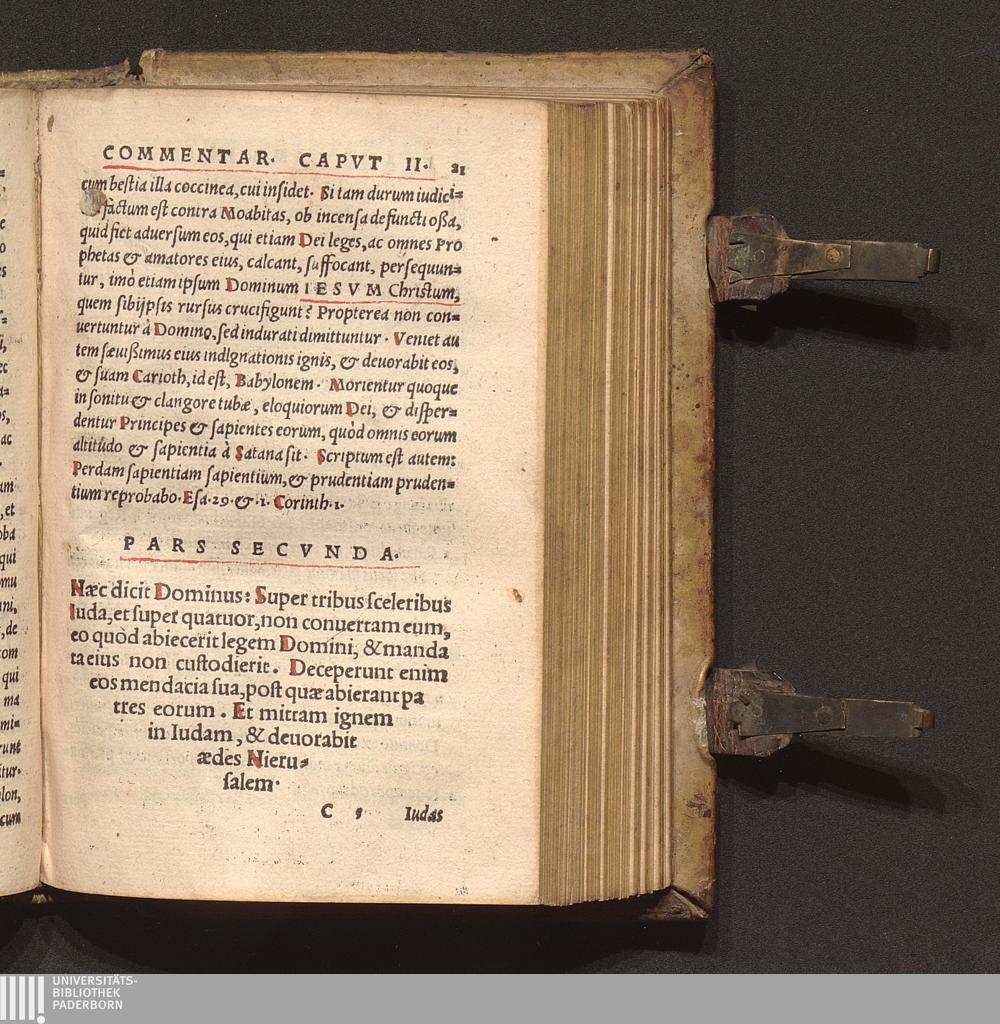 COMMENTAR. CAPVT II. 21
cum bestia illa coccinea, cui insidet. Si tam durum iudici=
factum est contra Moabitas, ob incensa defuncti oßa,
quid fiet aduersum eos, qui etiam Dei leges, ac omnes Pro
phetas & amatores eius, calcant, suffocant, persequun=
tur, imò etiam ipsum Dominum IESVM Christum,
quem sibijpsis rursus crucifigunt? Propterea non con=
uertuntur à Domino, sed indurati dimittuntur. Veniet au
tem sæuißimus eius indignationis ignis, & deuorabit eos,
& suam Carioth, id est, Babylonem. Morientur quoque
in sonitu & clangore tubæ, eloquiorum Dei, & disper=
dentur Principes & sapientes eorum, quòd omnis eorum
altitudo & sapientia à Satana sit. Scriptum est autem:
Perdam sapientiam sapientium, & prudentiam pruden=
tium reprobabo. Esa. 29. & .1. Corinth. 1.
PARS SECVNDA.
Hæc dicit Dominus: Super tribus sceleribus
Iuda, et super quatuor, non conuertam eum,
eo quòd abiecerit legem Domini, & manda
ta eius non custodierit. Deceperunt enim
eos mendacia sua, post quæ abierant pa
tres eorum. Et mittam ignem
in Iudam, & deuorabit
ædes Hieru=
salem.
C 5 Iudas
UNIVERSITÄTS-
BIBLIOTHEK
PADERBORN